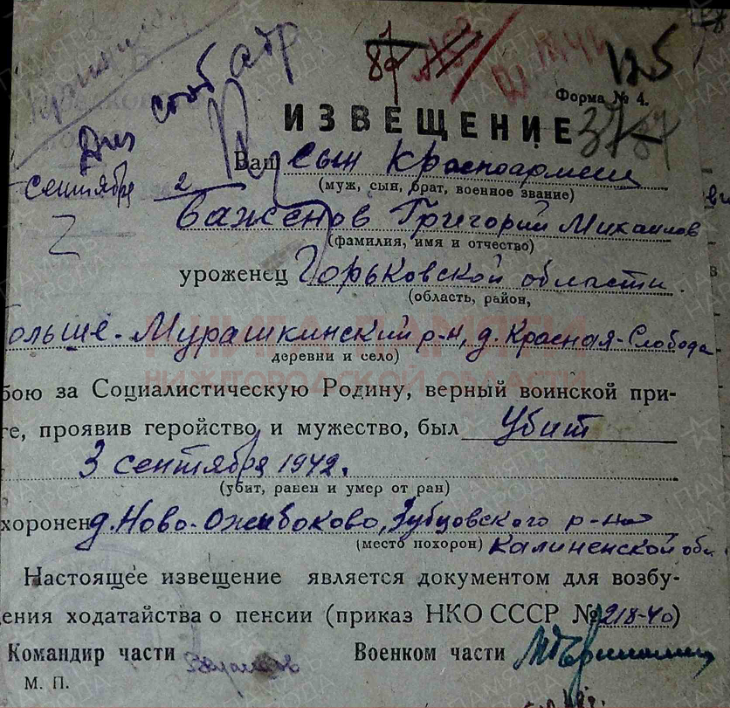 125
Форма № 4.
ИЗВЕЩЕНИЕ
Ваш сын красноармеец
(муж, сын, брат, военное звание)
сентября 2
Важенов Григорий Михаилов
(фамилия, имя и отчество)
уроженец Горьковской области
(область, район,
ольше-Мурашкинский р-н, д. Красная-Слобода
деревни и село)
бою за Социалистическую Родину, верный воинской при-
ге, проявив геройство и мужество, был убит
3 сентября 1942.
(убит, ранен и умер от ран)
хоронен д. Ново-Ожибоково, Зубцовского р-на
(место похорон) Калиненской обл
Настоящее извещение является документом для возбу-
дения ходатайства о пенсии (приказ НКО СССР № 218-40)
Командир части
Военком части
М. П.
КНИГА ПАМЯТИ
НИЖЕГОРОДСКОЙ ОБЛАСТИ
ПАМЯТЬ НАРОДА